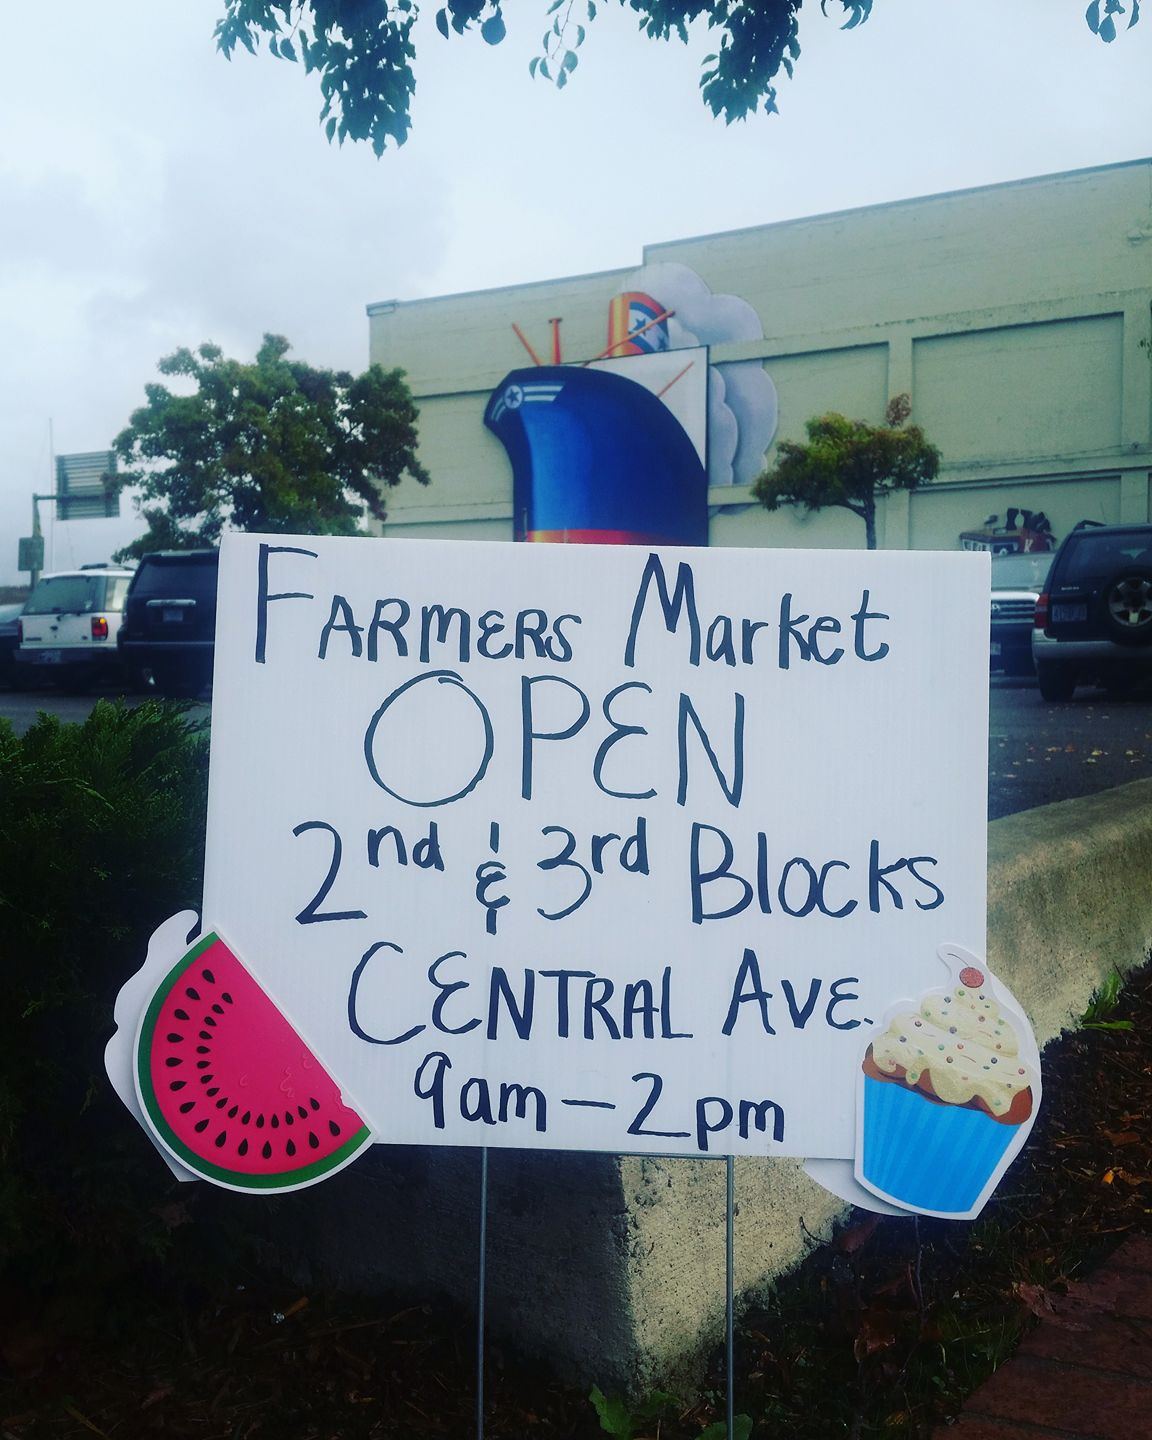 FARMERS Market
OPEN
2nd & 3rd Blocks
CENTRAL AVE.
9am - 2pm